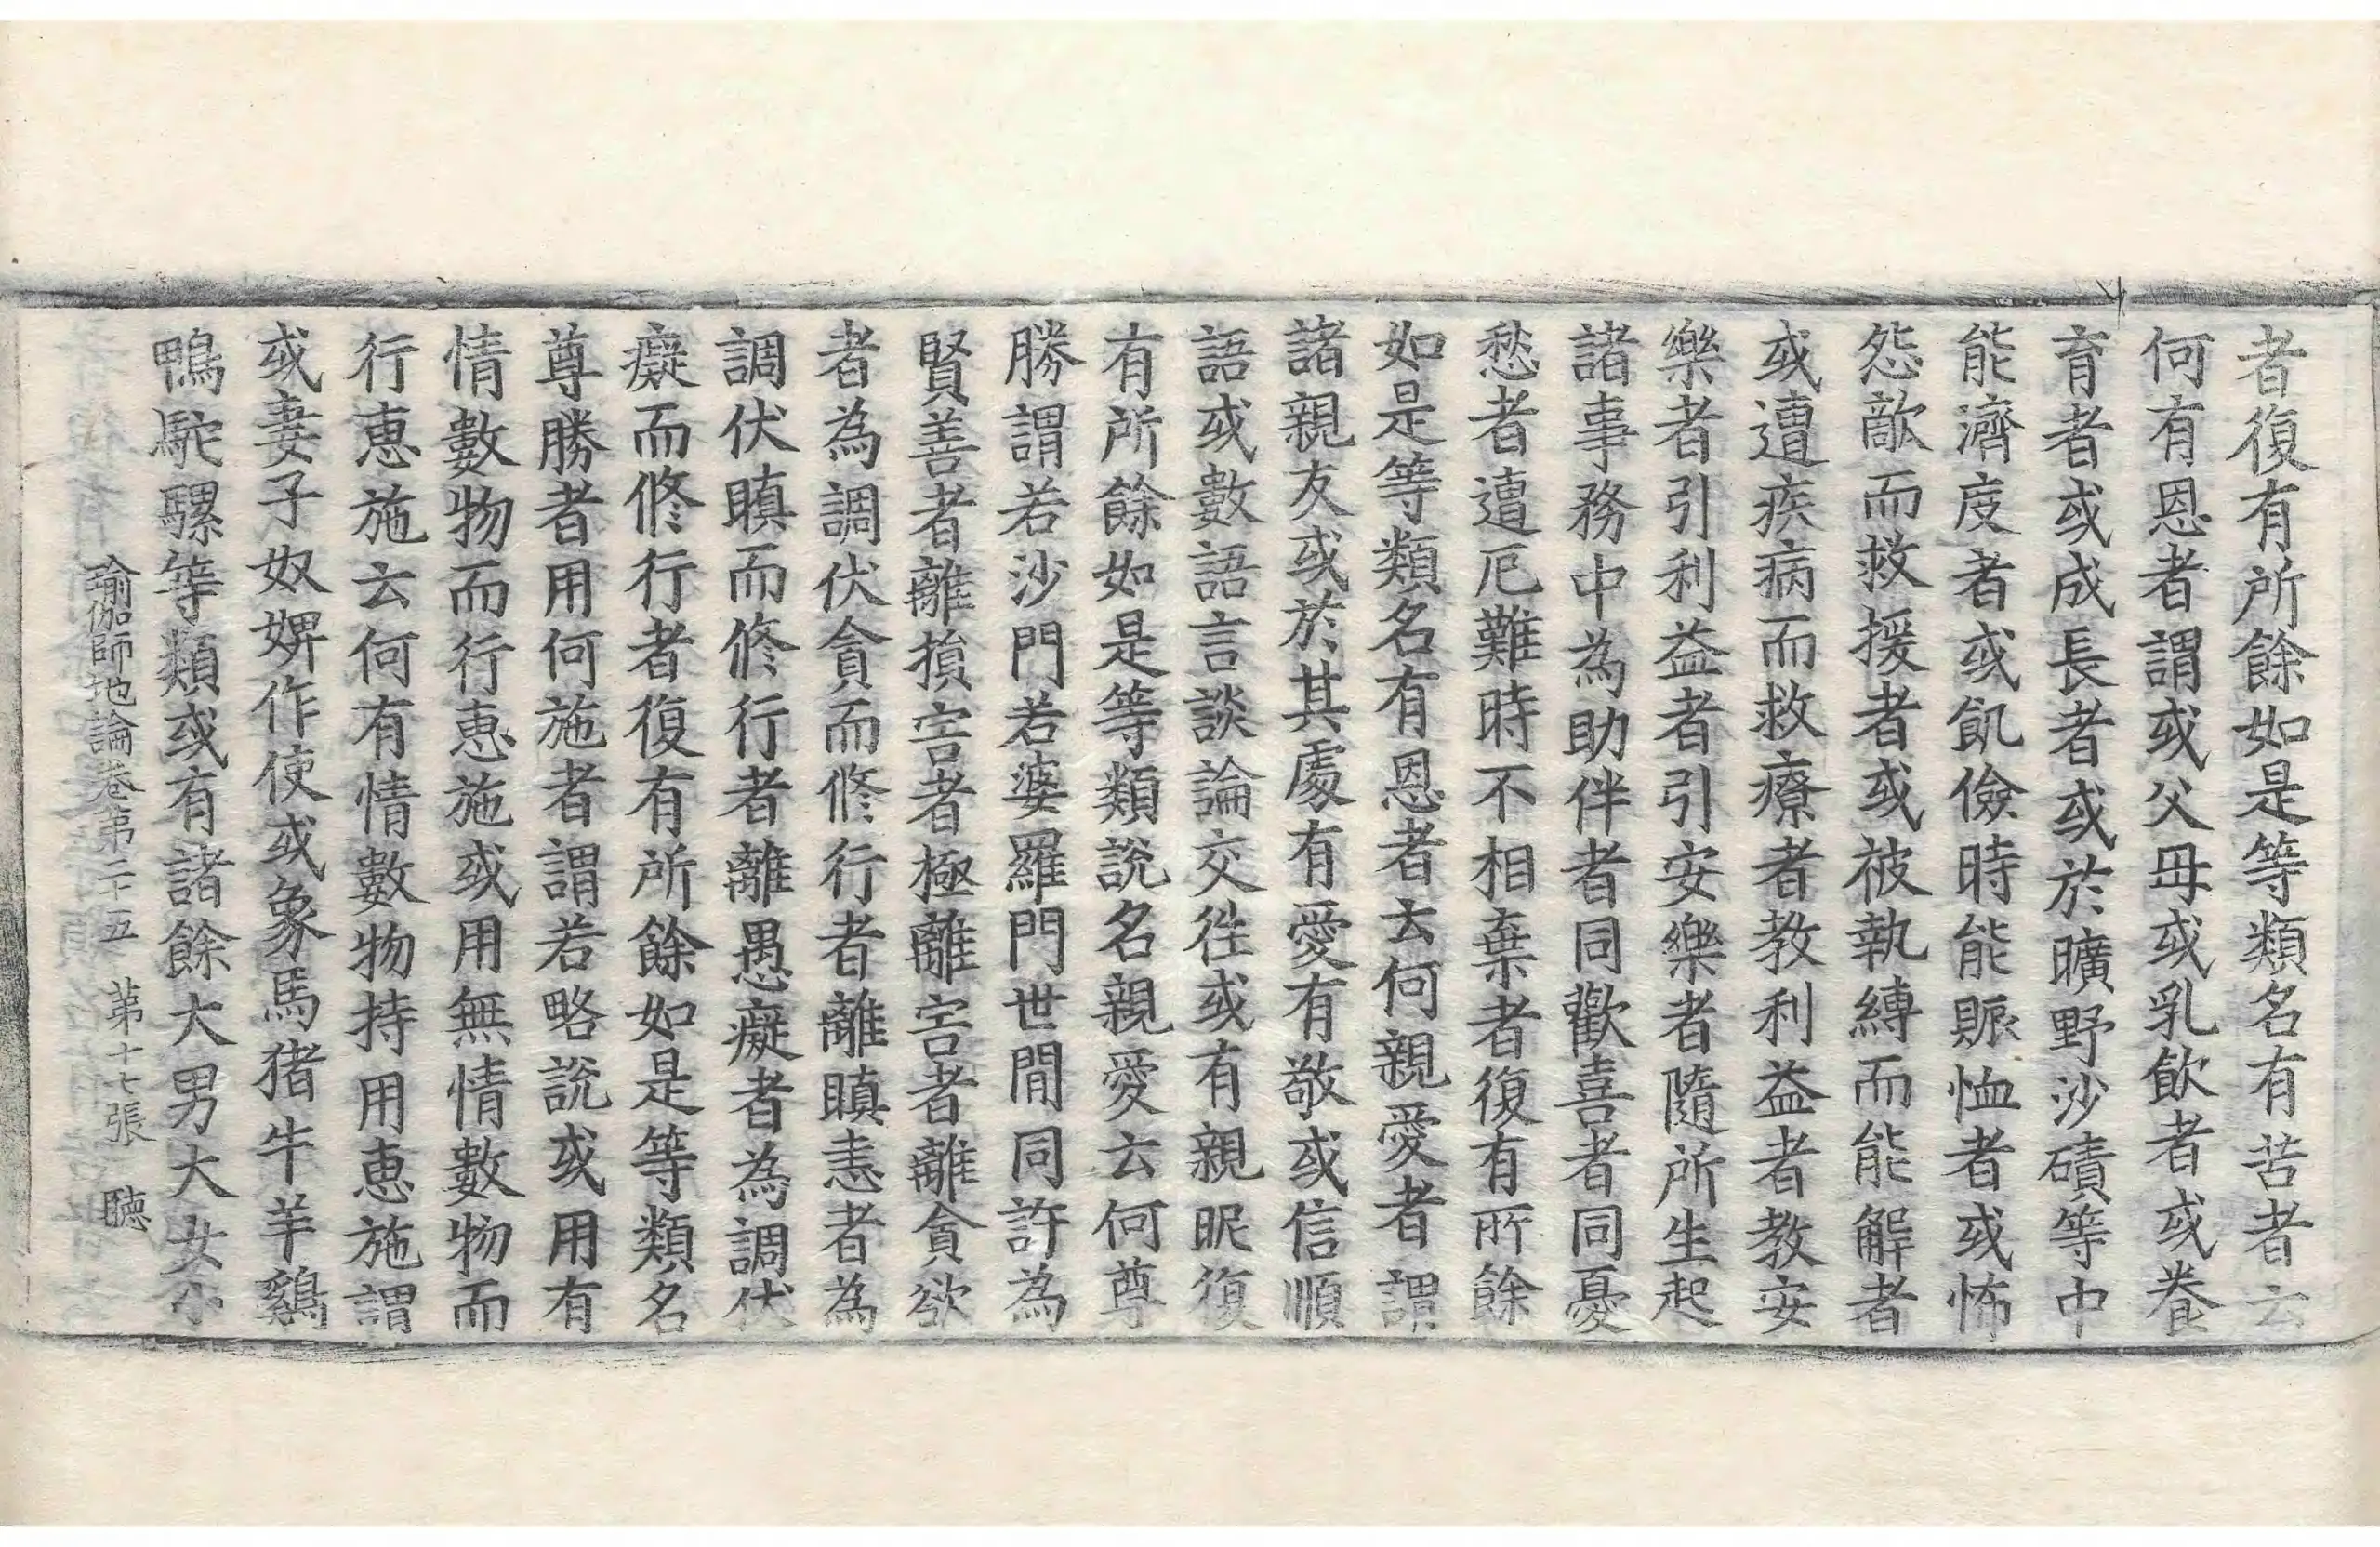 者復有所餘如是等類名有苦者云
何有恩者謂或父母或乳飲者或養
育者或成長者或於曠野沙磧等中
能濟度者或飢儉時能賑恤者或怖
怨敵而救援者或被執縛而能解者
或遭疾病而救療者教利益者教安
樂者引利益者引安樂者隨所生起
諸事務中為助伴者同歡喜者同憂
愁者遭厄難時不相棄者復有所餘
如是等類名有恩者云何親愛者謂
諸親友或於其處有愛有敬或信順
語或數語言談論交往或有親昵復
有所餘如是等類說名親愛云何尊
勝謂若沙門若婆羅門世間同許為
賢善者離損害者極離害者離貪欲
者為調伏貪而修行者離瞋恚者為
調伏瞋而修行者離愚癡者為調伏
癡而修行者復有所餘如是等類名
尊勝者用何施者謂若略說或用有
情數物而行惠施或用無情數物而
行惠施云何有情數物持用惠施謂
或妻子奴婢作使或象馬猪牛羊鷄
鴨駝騾等類或有諸餘大男大女小
瑜伽師地論卷第二十五 第十七張 聴